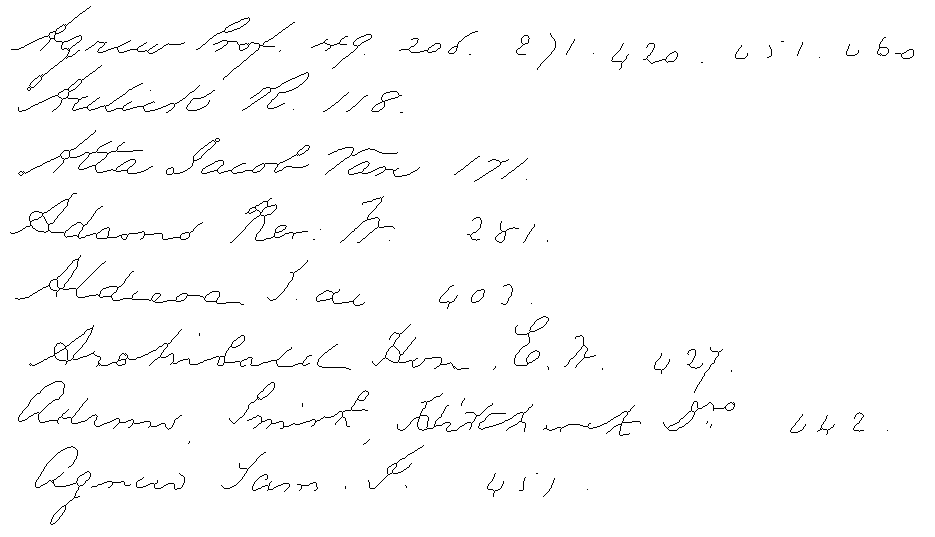 Agnew Prof. 49. 206. 271. 420. 451. 460
Aulick R. 118.
Atta Jacob Van 171.
Adams Rev. W. 281.
403.
Archibald Hon. E. W. 427.
Adams, Smith, Drs 442.
Agnew Sam. F. 451.